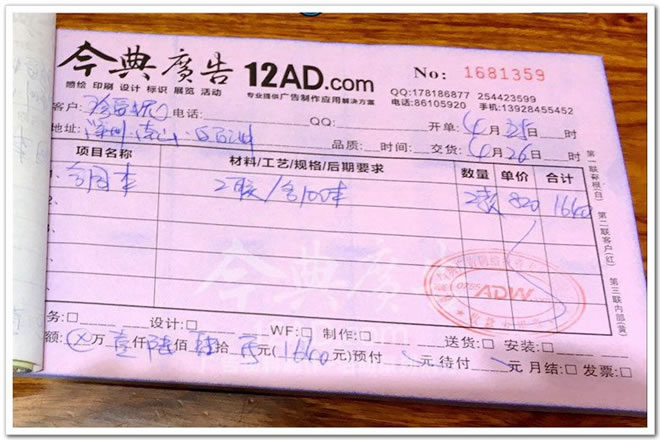 今典廣告 12AD.com
喷绘 印刷 设计 标识 展览 活动 专业提供广告制作应用解决方案
No: 1681359
QQ:178186877 254423599
电话:86105920 手机:13928455452
客户: 电话: QQ: 开单: 4月25日 时
地址: 品质: 时间: 交货: 4月26日 时
项目名称 材料/工艺/规格/后期要求 数量 单价 合计
合同本 2联/ 100本 820 1640
第一联存根(白) 第二联客户(红) 第三联内部(黄)
今典廣告
ADW
务:□ 设计:□ WF:□ 制作:□ 送货:□ 安装:□
额: 万 壹仟陆佰肆拾 元(1640元)预付 元待付 元 月结:□ 发票:□